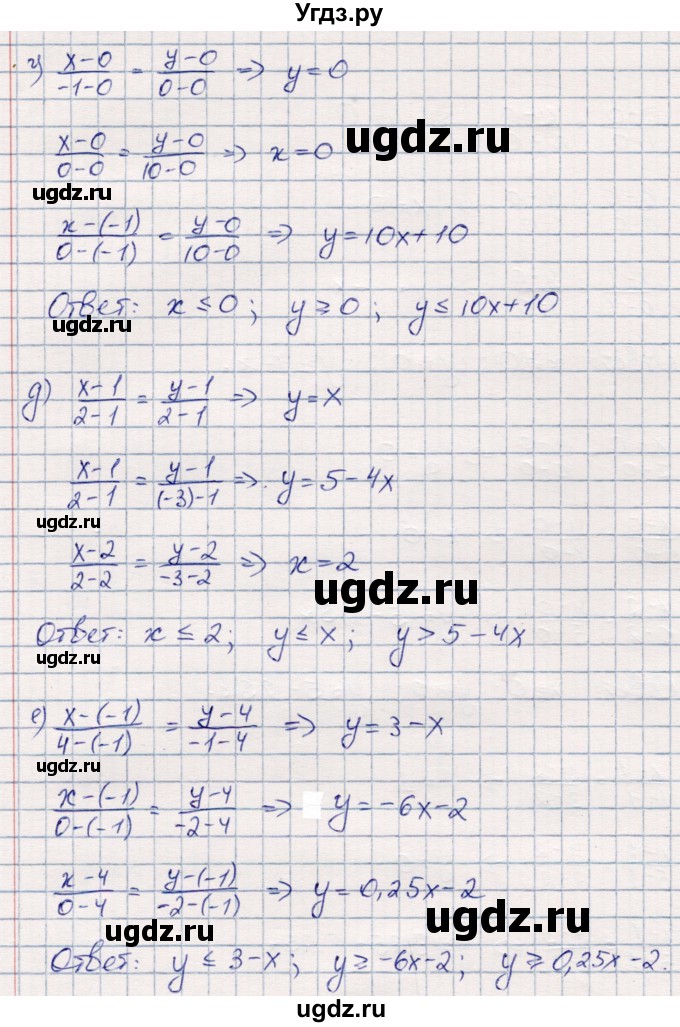 Угдз.ру
г) (x-0)/(-1-0) = (y-0)/(0-0) => y=0
(x-0)/(0-0) = (y-0)/(10-0) => x=0
ugdz.ru
ugdz.ru
(x-(-1))/(0-(-1)) = (y-0)/(10-0) => y=10x+10
Ответ: x≤0; y≥0; y≤10x+10
ugdz.ru
д) (x-1)/(2-1) = (y-1)/(2-1) => y=x
(x-1)/(2-1) = (y-1)/((-3)-1) => y=5-4x
ugdz.ru
(x-2)/(2-2) = (y-2)/(-3-2) => x=2
ugdz.ru
Ответ: x≤2; y≤x; y>5-4x
ugdz.ru
е) (x-(-1))/(4-(-1)) = (y-4)/(-1-4) => y=3-x
ugdz.ru
(x-(-1))/(0-(-1)) = (y-4)/(-2-4) => y=-6x-2
(x-4)/(0-4) = (y-(-1))/(-2-(-1)) => y=0,25x-2
ugdz.ru
ugdz.ru
Ответ: y≤3-x; y≥-6x-2; y≥0,25x-2.
ugdz.ru